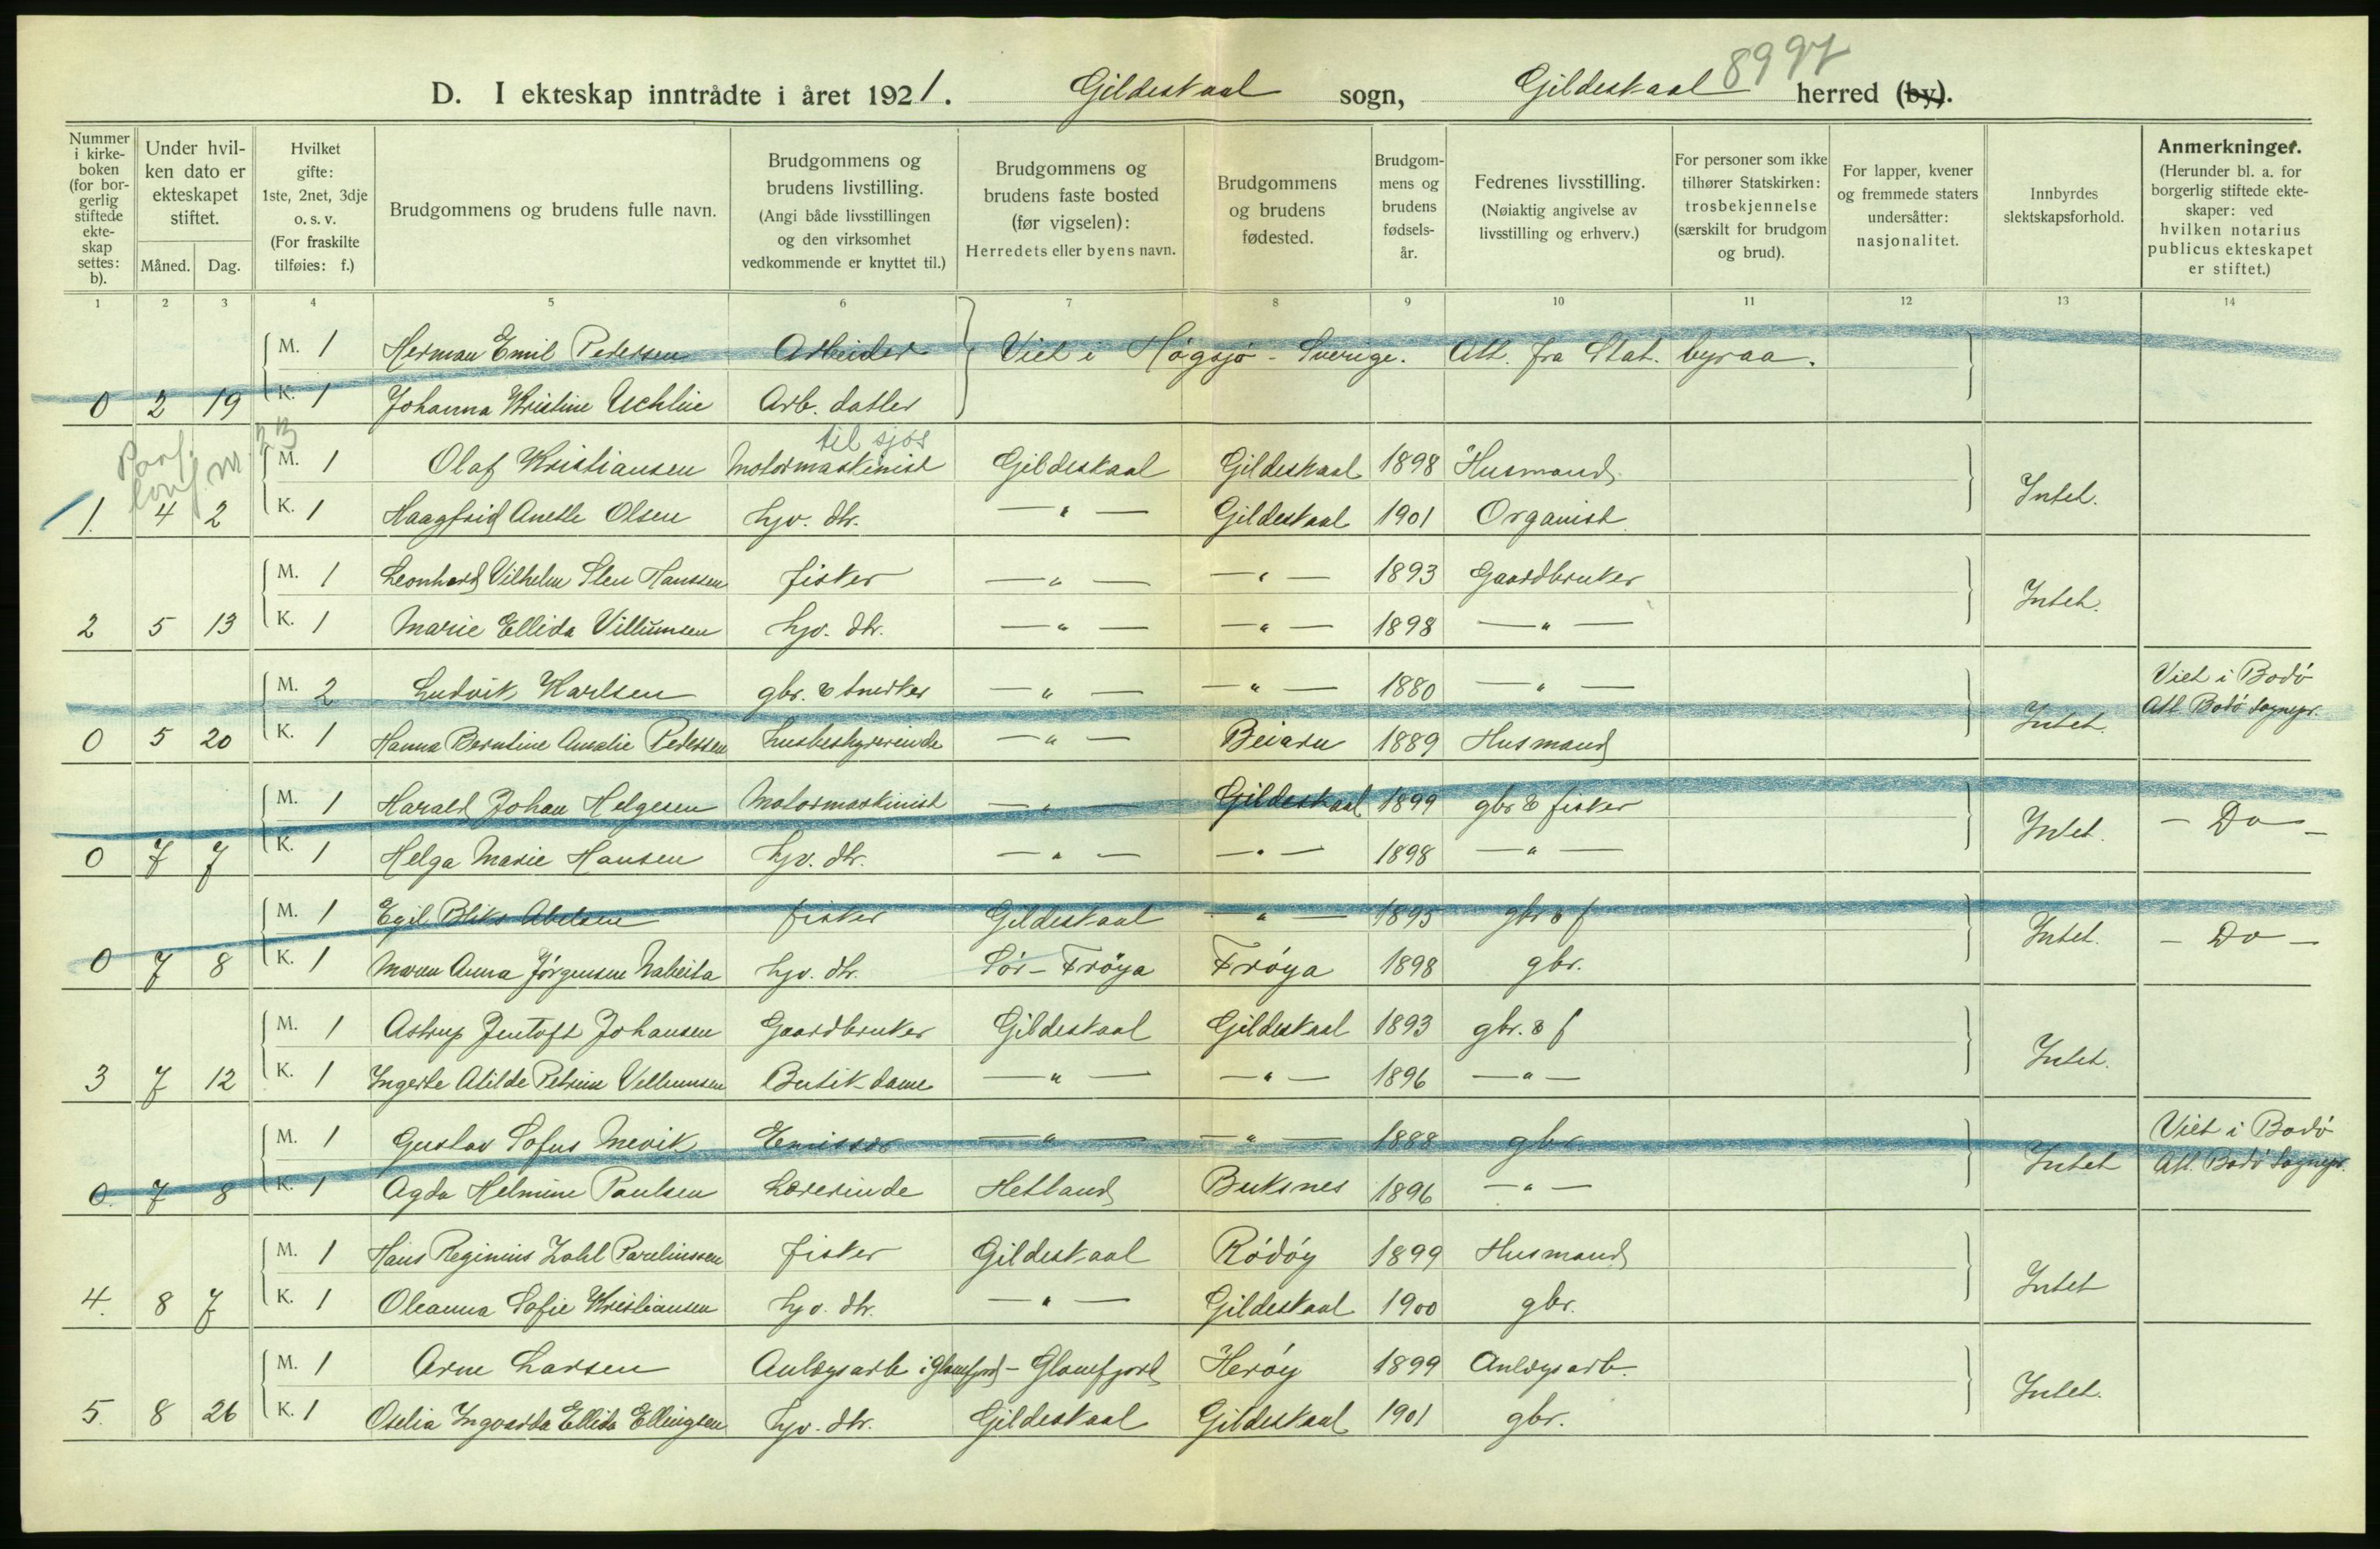 8997
D. I ekteskap inntrådte i året 1921. Gildeskaal sogn, Gildeskaal herred (by).
Nummer i kirke-boken (for bor-gerlig stiftede ekte-skap settes: b).
Under hvil-ken dato er ekteskapet stiftet.
Måned. Dag.
Hvilket gifte: 1ste, 2net, 3dje o. s. v. (For fraskilte tilføies: f.)
Brudgommens og brudens fulle navn.
Brudgommens og brudens livstilling. (Angi både livsstillingen og den virksomhet vedkommende er knyttet til.)
Brudgommens og brudens faste bosted (før vigselen): Herredets eller byens navn.
Brudgommens og brudens fødested.
Brudgom-mens og brudens fødsels-år.
Fedrenes livsstilling. (Nøiaktig angivelse av livsstilling og erhverv.)
For personer som ikke tilhører Statskirken: trosbekjennelse (særskilt for brudgom og brud).
For lapper, kvener og fremmede staters undersåtter: nasjonalitet.
Innbyrdes slektskapsforhold.
Anmerkninger. (Herunder bl. a. for borgerlig stiftede ekte-skaper: ved hvilken notarius publicus ekteskapet er stiftet.)
1 2 3 4 5 6 7 8 9 10 11 12 13 14
M. 1 Herman Emil Pedersen Arbeider Viet i Högsjö - Sverige. Att. fra Stat. byraa.
0 2 19 K. 1 Johanna Kristine Uchlie Arb. datter
til sjøs
M. 1 Olaf Kristiansen Motormaskinist Gildeskaal Gildeskaal 1898 Husmand
Intet.
1. 4 2 K. 1 Haagfrid Anette Olsen hjv. dtr. — " — Gildeskaal 1901 Organist
M. 1 Leonhard Vilhelm Sten Hanssen fisker — " — — " — 1893 Gaardbruker
Intet.
2 5 13 K. 1 Marie Ellida Villumsen hjv. dtr. — " — — " — 1898 — " —
M. 2 Ludvik Karlsen gbr. & snekker — " — — " — 1880 — " — Viet i Bodö
Intet. Att. Bodö Sognepr.
0 5 20 K. 1 Hanna Berntine Amalie Pedersen husbestyrerinde — " — Beiarn 1889 Husmand
M. 1 Harald Johan Helgesen Motormaskinist — " — Gildeskaal 1899 gbr & fisker
Intet. — Do —
0 7 7 K. 1 Helga Marie Hansen hjv. dtr. — " — — " — 1898 — " —
M. 1 Egil Bliks Abelsen fisker Gildeskaal — " — 1895 gbr & f
Intet. — Do —
0 7 8 K. 1 Maren Anna Jörgensen Nabeita hjv. dtr. Sör-Fröya Fröya 1898 gbr.
M. 1 Astrup Jentoft Johansen Gaardbruker Gildeskaal Gildeskaal 1893 gbr. & f
Intet.
3 7 12 K. 1 Ingerte Atilde Petrine Vellumsen Butikdame — " — — " — 1896 — " —
M. 1 Gustav Sofus Mevik Emissær — " — — " — 1888 gbr Viet i Bodö
Intet Att. Bodö Sognepr.
0. 7 8 K. 1 Agda Helmine Paulsen Lærerinde Hetland Buksnes 1896 — " —
M. 1 Hans Reginius Zahl Parelinssen fisker Gildeskaal Rödöy 1899 Husmand
Intet
4. 8 7 K. 1 Oleanna Sofie Kristiansen hjv. dtr. — " — Gildeskaal 1900 gbr.
M. 1 Arne Larsen Anlægsarb i Glomfjord - Glomfjord Heröy 1899 Anlægsarb.
Intet.
5. 8 26 K. 1 Otelia Ingvarda Ellida Ellingsen hjv. dtr. Gildeskaal Gildeskaal 1901 gbr.